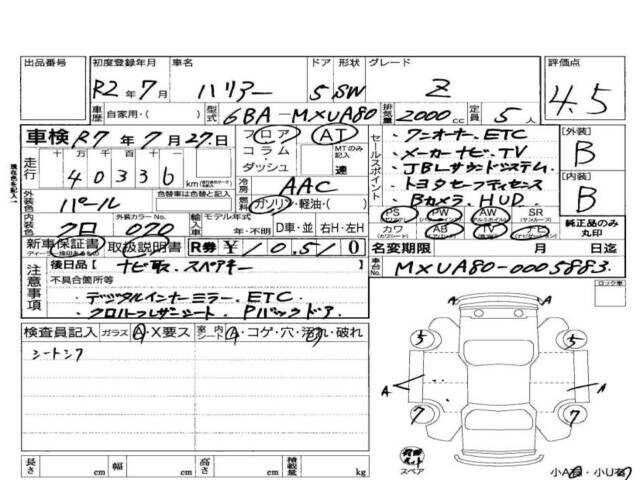 出品番号 初度登録年月 車名 ドア 形状 グレード 評価点
R2年7月 ハリアー 5 SW Z 4.5
車歴 自家用・( ) 型式 6BA-MXUA80 排気量 2000cc 定員 5人
車検 R7年7月27日 フロア AT セールスポイント
・ワンオーナー. ETC
・メーカーナビ. TV
・JBLサウンドシステム
・トヨタセーフティセンス
・Bカメラ. HUD
[外装] B
[内装] B
純正品のみ丸印
走行 十万 万 千 百 十 一
40336 km
コラム
ダッシュ
MTのみ記入
速
外装色 パール 色替車は色替と記入
冷房 AAC
燃料 ガソリン・軽油・( )
内装色 クロ 外装カラーNo. 070 輸入車 モデル年式 年・不明 D車・並 右H・左H
PS PW AW SR
カワ AB TV ナビ
新車保証書 取扱説明書 R券 ¥10,510
名変期限 月 日迄
車台No. MXUA80-0005883
注意事項
後日品 [ ナビ取. スペアキー ]
不具合箇所等
・デジタルインナーミラー. ETC
・クロハーフレザーシート. Pバックドア.
検査員記入 ガラス A・X要ス 室内シート A・コゲ・穴・汚れ・破れ
シートシワ
長さ cm 幅 cm 高さ cm 積載量 kg
ロック車
A A
5 5
A A
7 7
スペア
小A・小U有